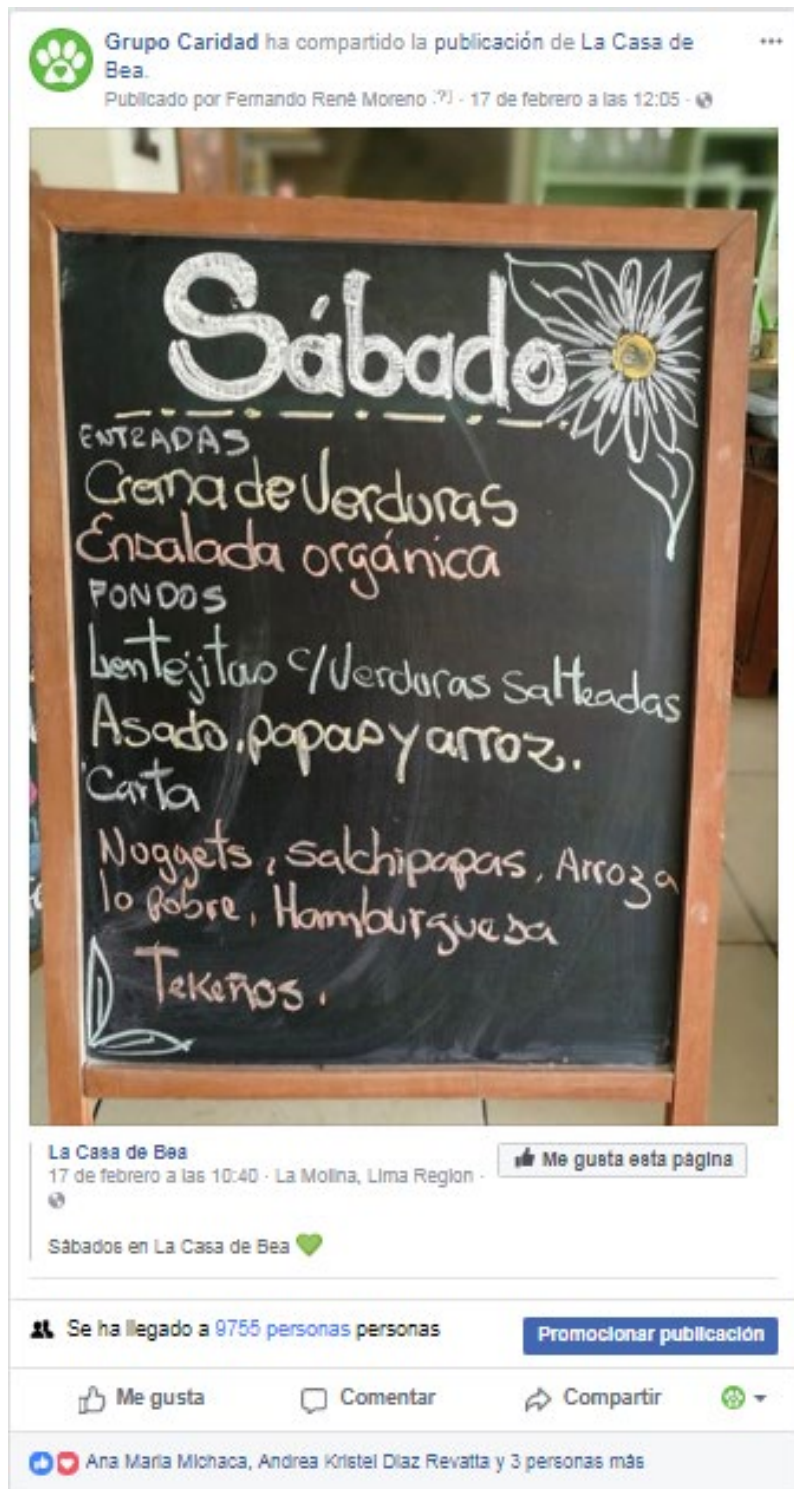 Grupo Caridad ha compartido la publicación de La Casa de
Bea.
Publicado por Fernando René Moreno [?] · 17 de febrero a las 12:05 ·
Sábado
ENTRADAS
Crema de Verduras
Ensalada orgánica
FONDOS
Lentejitas c/Verduras Salteadas
Asado, papas y arroz.
Carta
Nuggets, Salchipapas, Arroz a
lo Pobre, Hamburguesa
Tekeños.
La Casa de Bea
17 de febrero a las 10:40 · La Molina, Lima Region ·
Me gusta esta página
Sábados en La Casa de Bea
Se ha llegado a 9755 personas personas
Promocionar publicación
Me gusta
Comentar
Compartir
Ana Maria Michaca, Andrea Kristel Diaz Revatta y 3 personas más